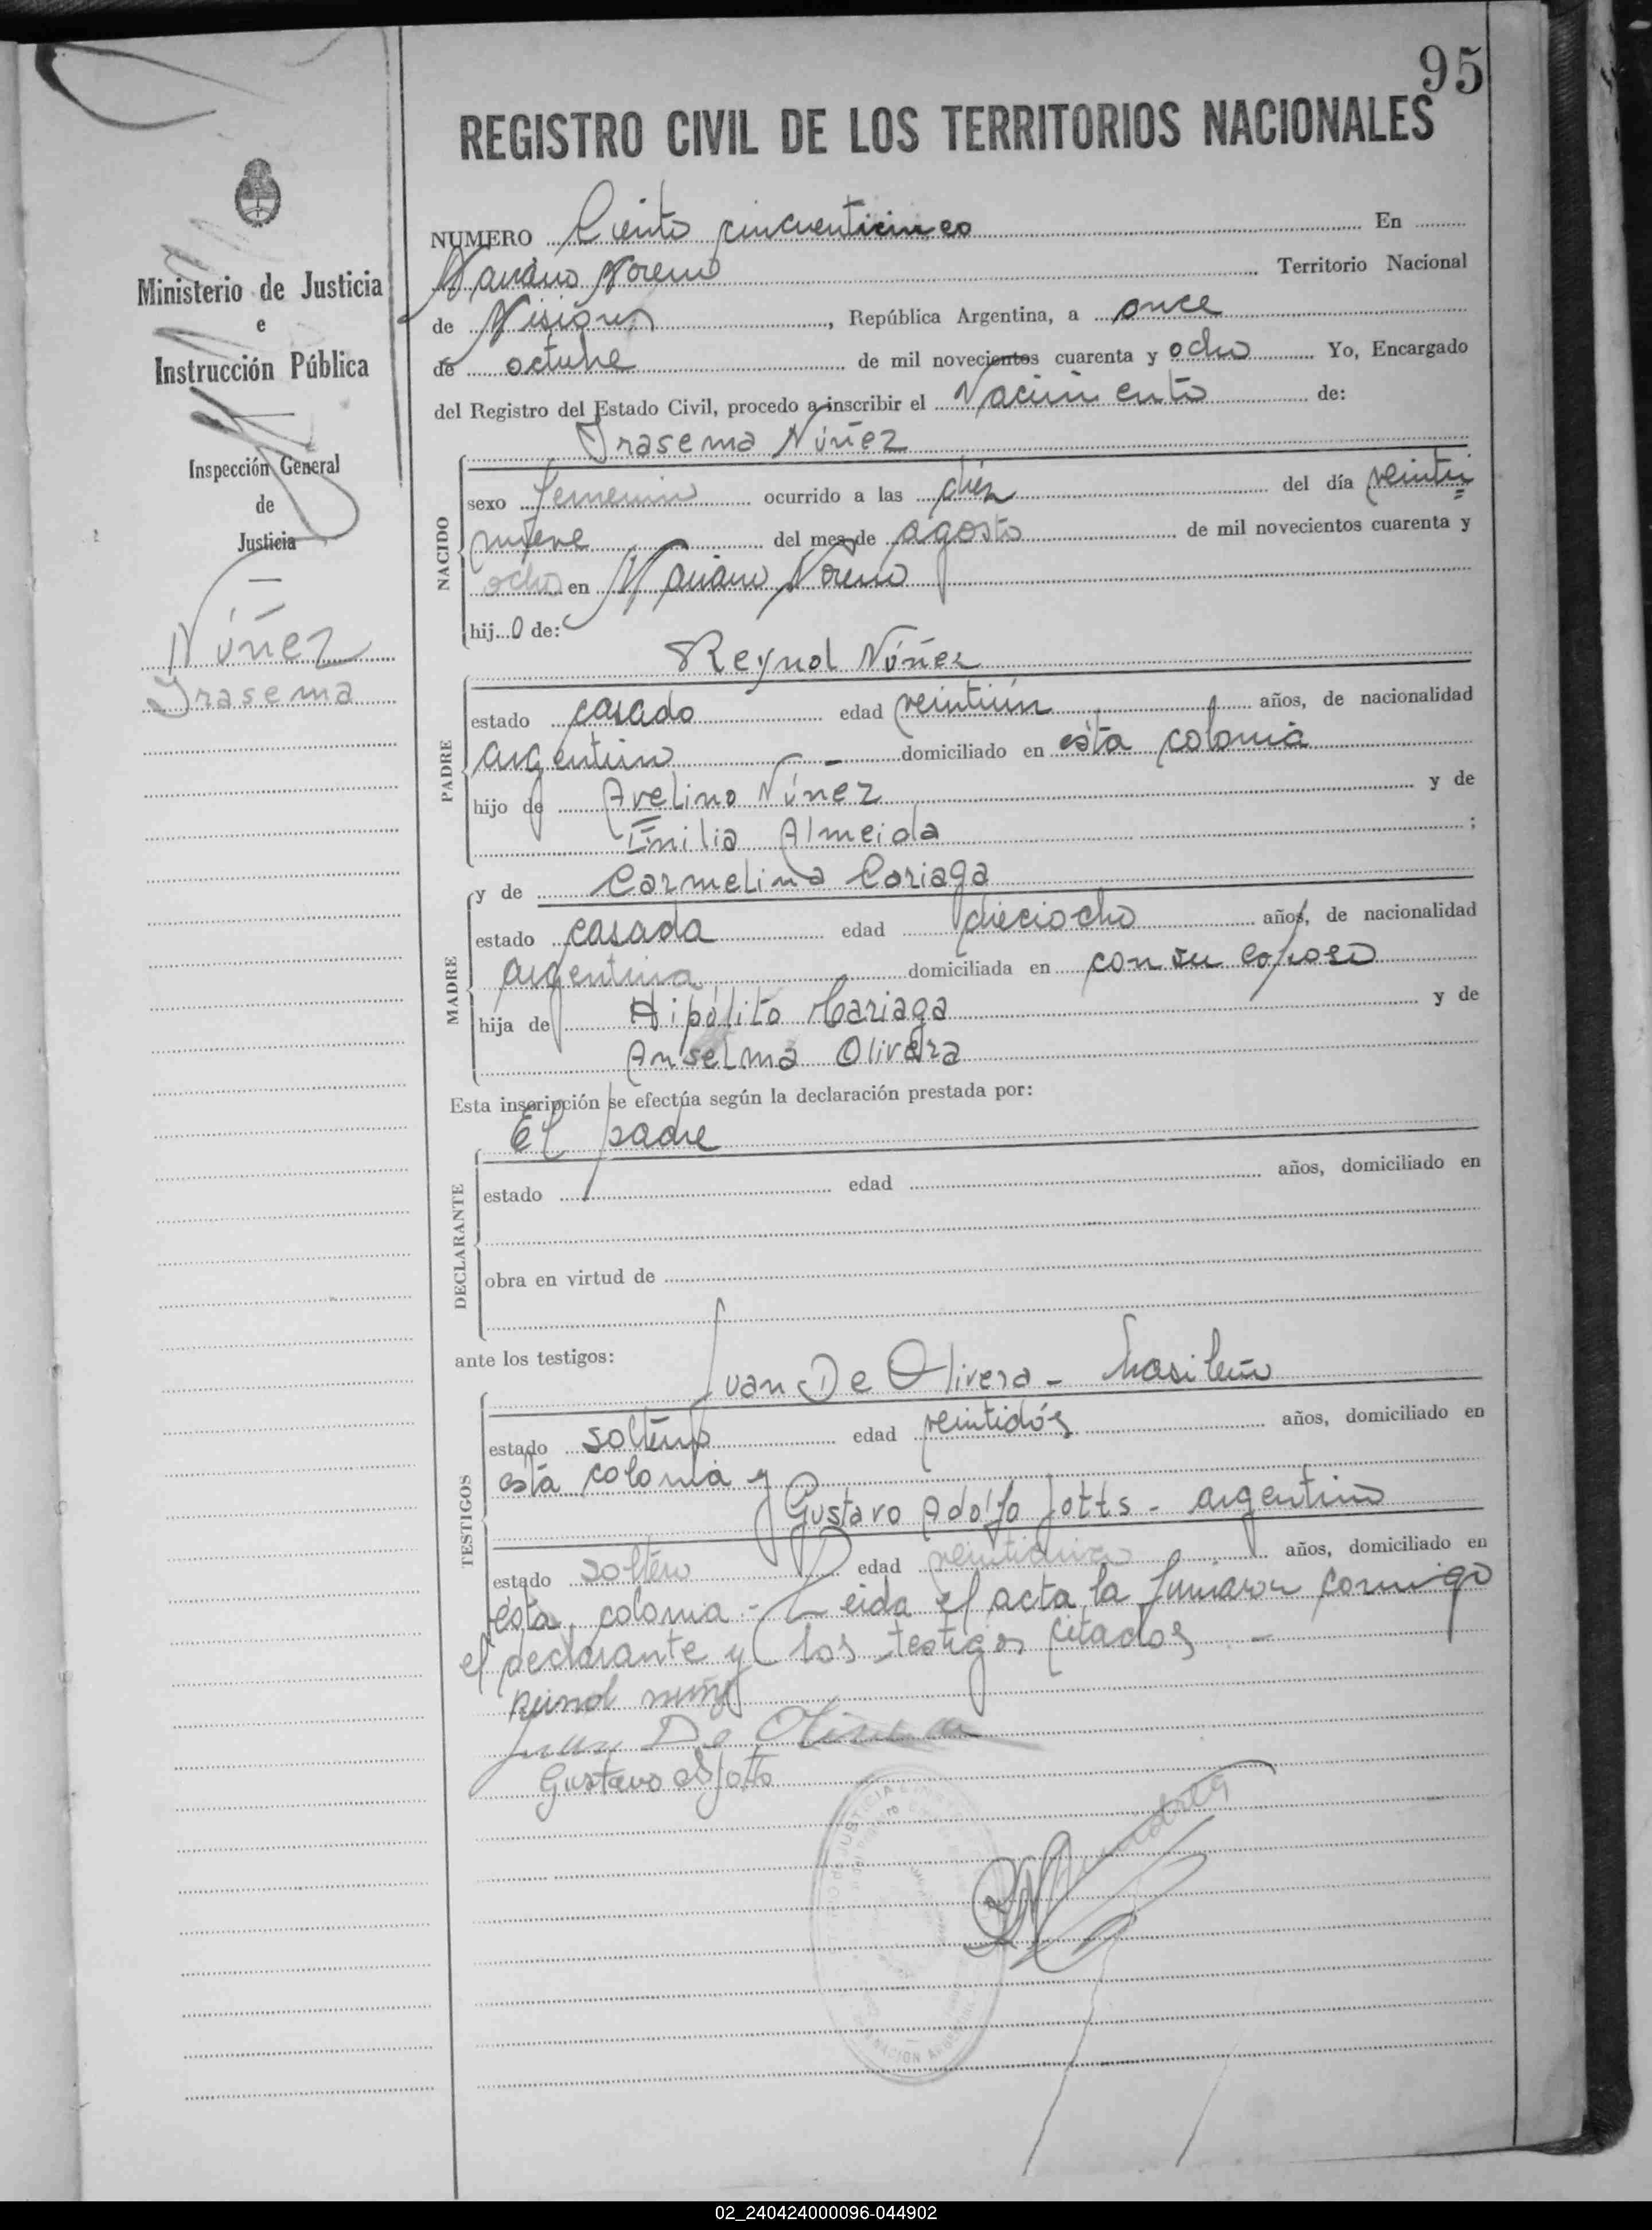 95
REGISTRO CIVIL DE LOS TERRITORIOS NACIONALES
Ministerio de Justicia
e
Instrucción Pública
Inspección General
de
Justicia
Núñez
Irasema
NUMERO Ciento cincuenticinco En
Mariano Moreno Territorio Nacional
de Misiones, República Argentina, a once
de octubre de mil novecientos cuarenta y ocho Yo, Encargado
del Registro del Estado Civil, procedo a inscribir el Nacimiento de:
Irasema Núñez
NACIDO
sexo femenino ocurrido a las diez del día veinti=
nueve del mes de agosto de mil novecientos cuarenta y
ocho en Mariano Moreno
hij o de:
Reynol Núñez
PADRE
estado casado edad veintiún años, de nacionalidad
argentino - domiciliado en esta colonia
hijo de Avelino Núñez y de
Emilia Almeida ;
y de Carmelina Cariaga
MADRE
estado casada edad dieciocho años, de nacionalidad
argentina domiciliada en con su esposo
hija de Hipólito Cariaga y de
Anselma Olivera
Esta inscripción se efectúa según la declaración prestada por:
El padre
DECLARANTE
estado edad años, domiciliado en
obra en virtud de
ante los testigos:
Juan De Olivera - brasileño
TESTIGOS
estado soltero edad veintidós años, domiciliado en
esta colonia y
Gustavo Adolfo Jotts - argentino
estado soltero edad años, domiciliado en
esta colonia - Leida el acta la firmaron conmigo
el declarante y los testigos citados -
Reinol nuñez
Juan De Olivera
Gustavo
JUSTICIA
NACION
02_240424000096-044902